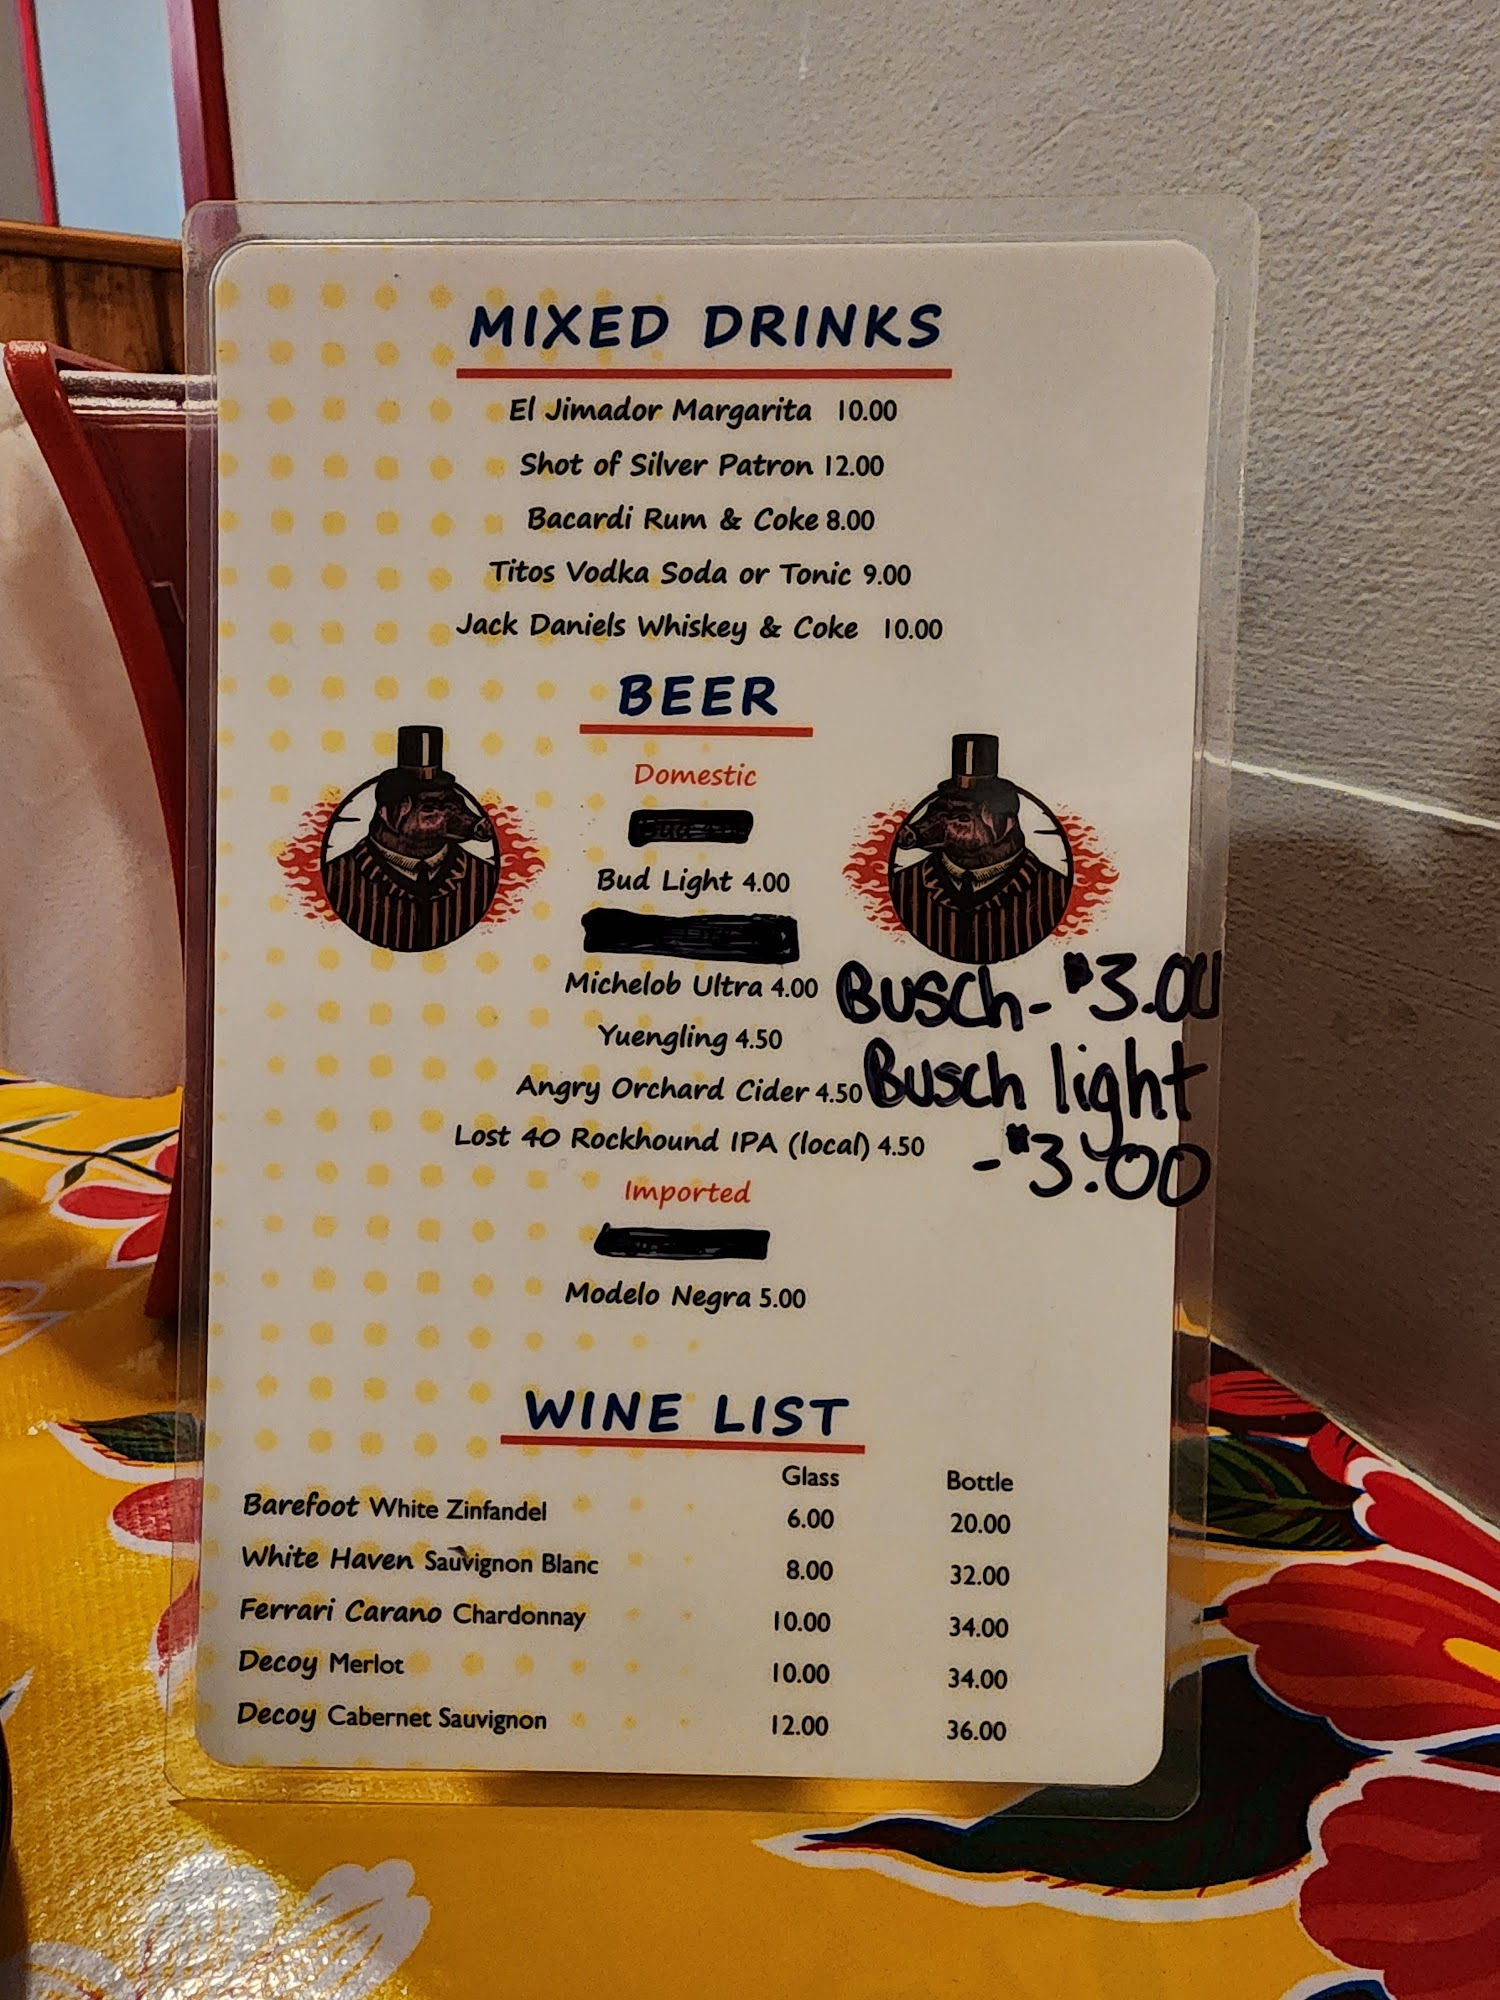 MIXED DRINKS
El Jimador Margarita 10.00
Shot of Silver Patron 12.00
Bacardi Rum & Coke 8.00
Titos Vodka Soda or Tonic 9.00
Jack Daniels Whiskey & Coke 10.00
BEER
Domestic
Bud Light 4.00
Michelob Ultra 4.00
Yuengling 4.50
Angry Orchard Cider 4.50
Lost 40 Rockhound IPA (local) 4.50
Busch - $3.00
Busch light
- $3.00
Imported
Modelo Negra 5.00
WINE LIST
Glass Bottle
Barefoot White Zinfandel 6.00 20.00
White Haven Sauvignon Blanc 8.00 32.00
Ferrari Carano Chardonnay 10.00 34.00
Decoy Merlot 10.00 34.00
Decoy Cabernet Sauvignon 12.00 36.00